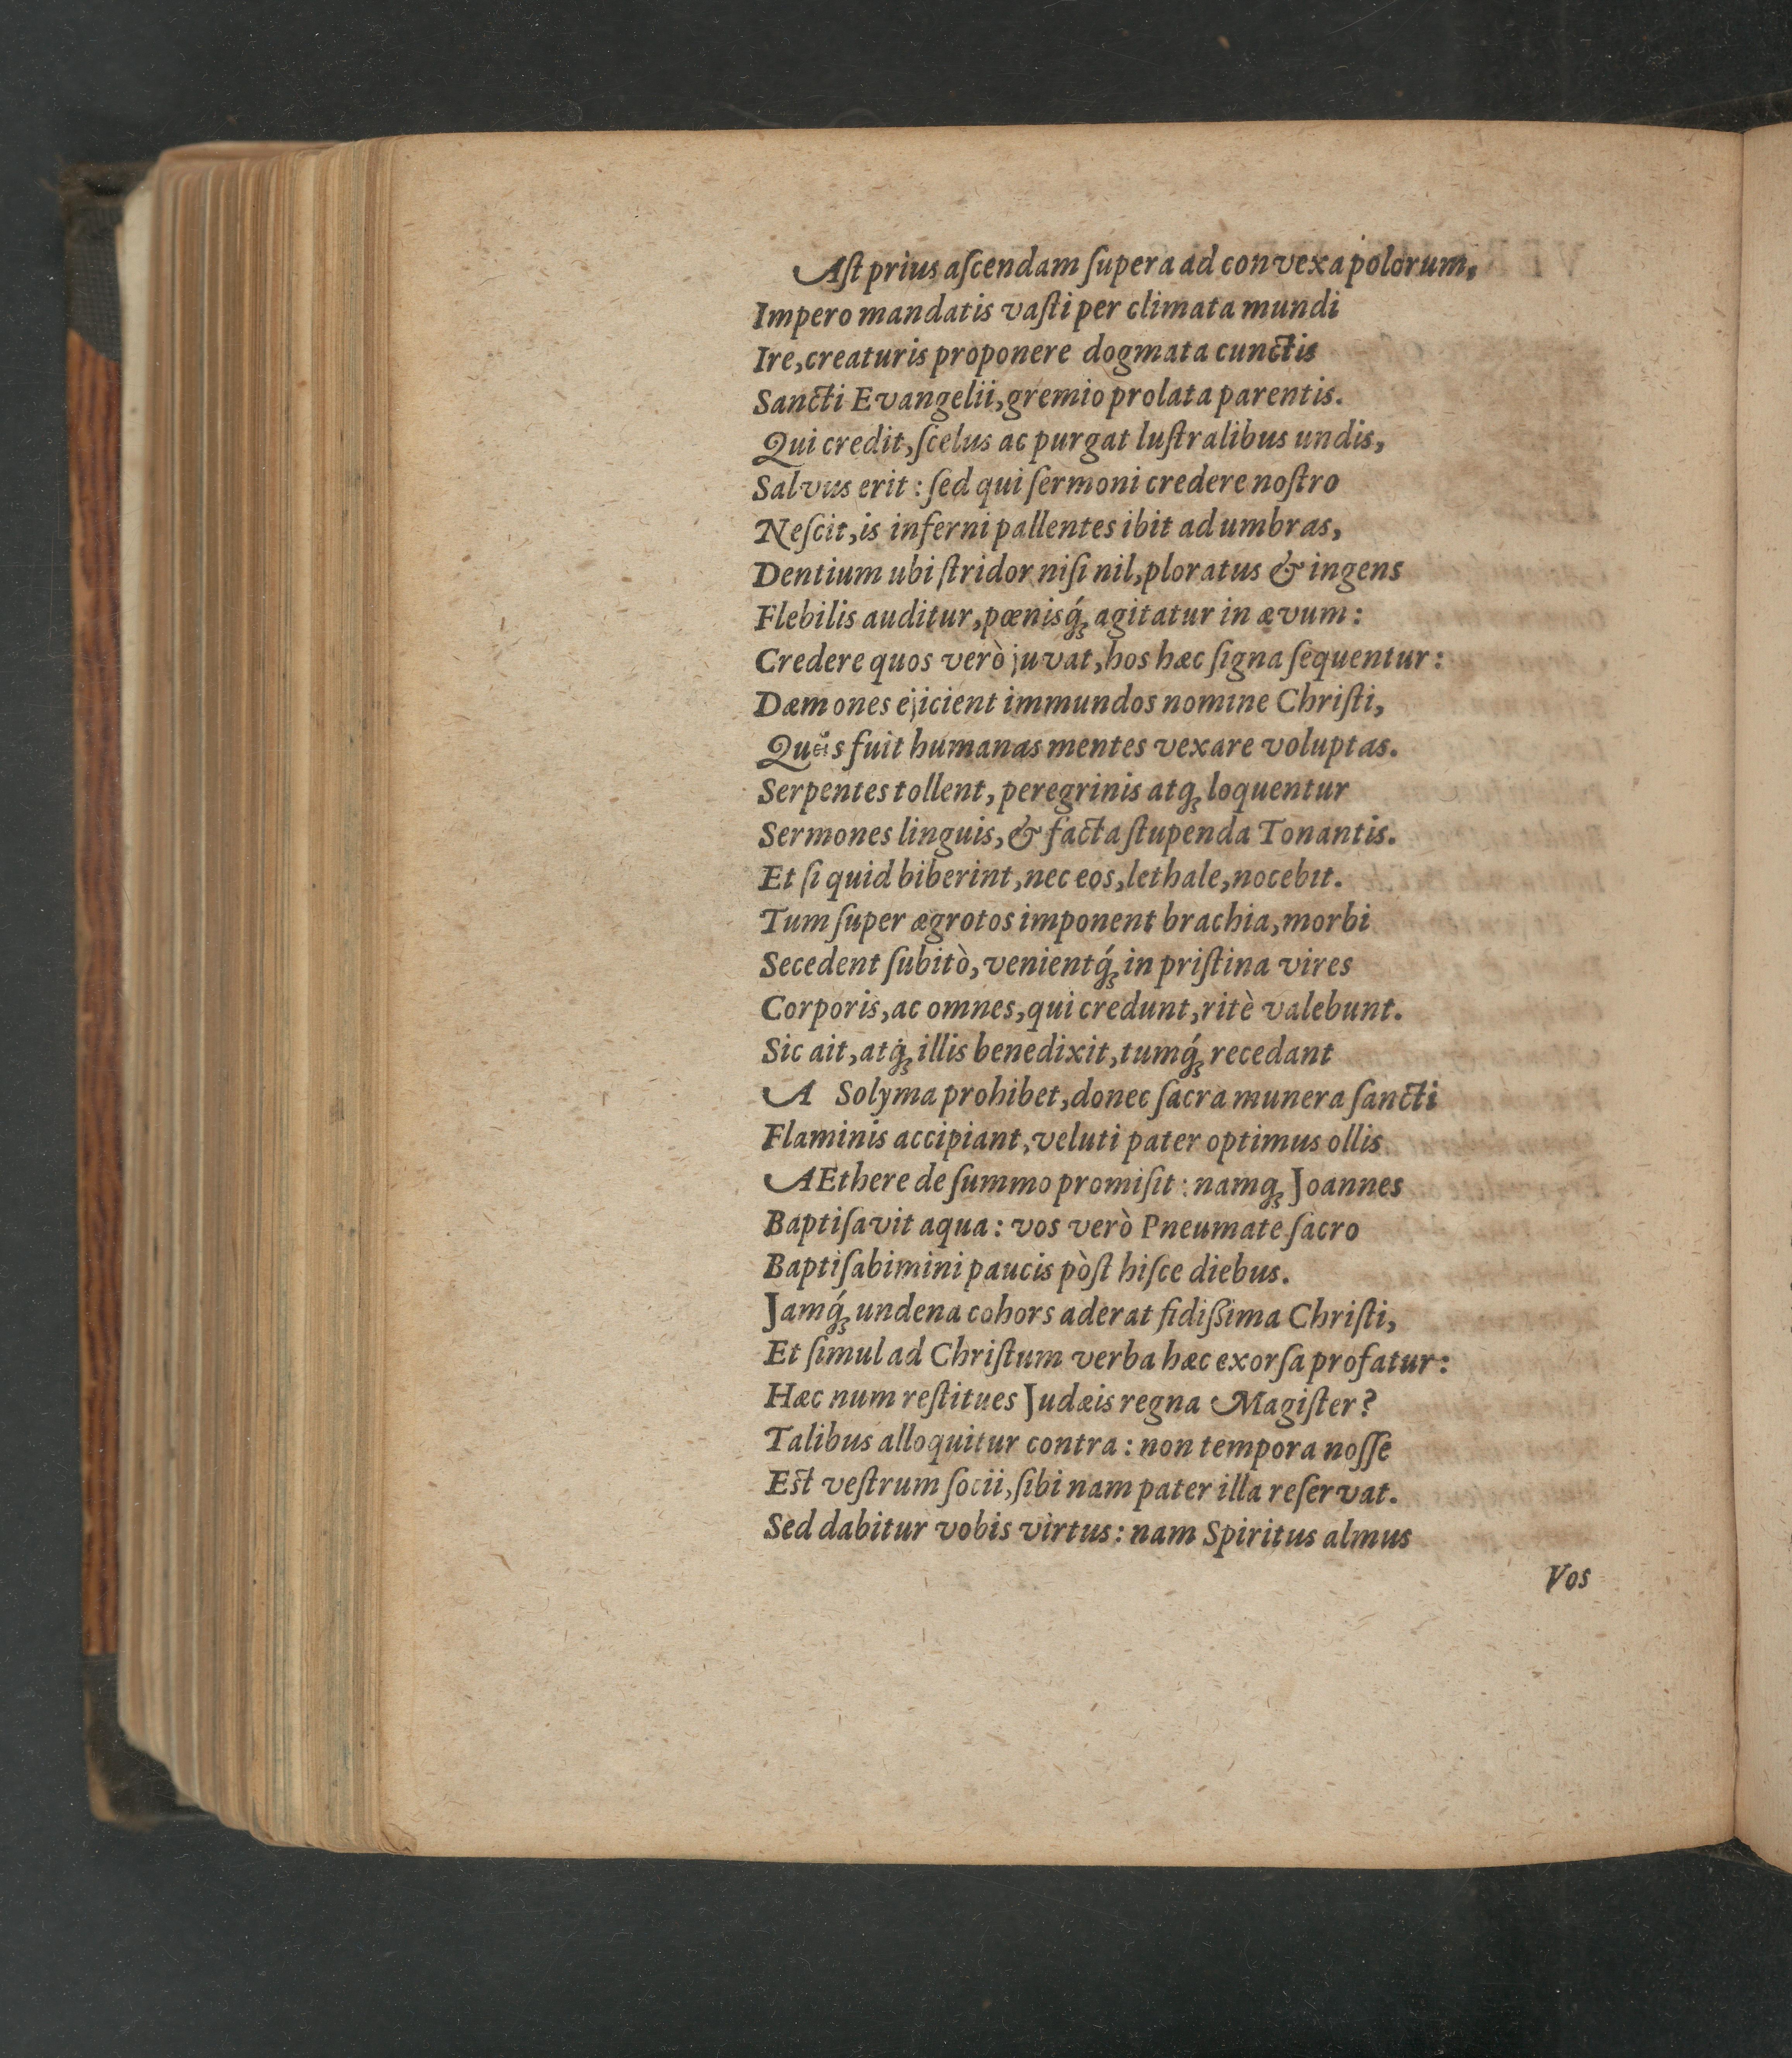 Aſt prius aſcendam ſupera ad convexa polorum,
Impero mandatis vaſti per climata mundi
Ire, creaturis proponere dogmata cunctis
Sancti Evangelii, gremio prolata parentis.
Qui credit, ſcelus ac purgat luſtralibus undis,
Salvus erit: ſed qui ſermoni credere noſtro
Neſcit, is inferni pallentes ibit ad umbras,
Dentium ubi ſtridor niſi nil, ploratus & ingens
Flebilis auditur, pœnisq́ꝫ agitatur in ævum:
Credere quos verò juvat, hos hæc ſigna ſequentur:
Dæmones ejicient immundos nomine Chriſti,
Queîs fuit humanas mentes vexare voluptas.
Serpentes tollent, peregrinis atqꝫ loquentur
Sermones linguis, & facta ſtupenda Tonantis.
Et ſi quid biberint, nec eos, lethale, nocebit.
Tum ſuper ægrotos imponent brachia, morbi
Secedent ſubitò, venientq́ꝫ in priſtina vires
Corporis, ac omnes, qui credunt, ritè valebunt.
Sic ait, atqꝫ illis benedixit, tumq́ꝫ recedant
A Solyma prohibet, donec ſacra munera ſancti
Flaminis accipiant, veluti pater optimus ollis
AEthere de ſummo promiſit: namqꝫ Joannes
Baptiſavit aqua: vos verò Pneumate ſacro
Baptiſabimini paucis pòſt hiſce diebus.
Jamq́ꝫ undena cohors aderat fidiſſima Chriſti,
Et ſimul ad Chriſtum verba hæc exorſa profatur:
Hæc num reſtitues Judæis regna Magiſter?
Talibus alloquitur contra: non tempora noſſe
Eſt veſtrum ſocii, ſibi nam pater illa reſervat.
Sed dabitur vobis virtus: nam Spiritus almus
Vos